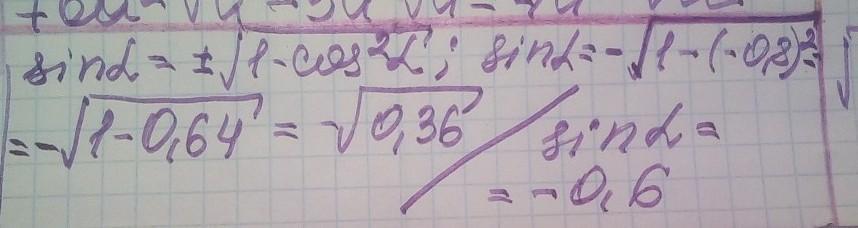 sinα = ±√1-cos²α; sinα = -√1-(-0,8)²=
= -√1-0,64 = √0,36 / sinα =
= -0,6